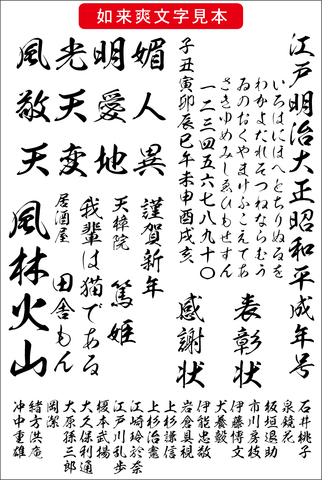 如来爽文字見本
江戸明治大正昭和平成年号
いろはにほへとちりぬるを
わかよたれそつねならむう
ゐのおくやまけふこえてあ
さきゆめみしゑひもせすん
一二三四五六七八九十〇
子丑寅卯辰巳午未申酉戌亥
表彰状
感謝状
媚人異
明愛地
光天変
風敬天
謹賀新年
天樟院 篤姫
我輩は猫である
居酒屋 田舎もん
風林火山
石井桃子
泉鏡花
板垣退助
市川房枝
伊藤博文
犬養毅
伊能忠敬
岩倉具視
上杉謙信
上杉治憲
江崎玲於奈
江戸川乱歩
榎本武揚
大久保利通
大原孫三郎
岡潔
緒方洪庵
沖中重雄